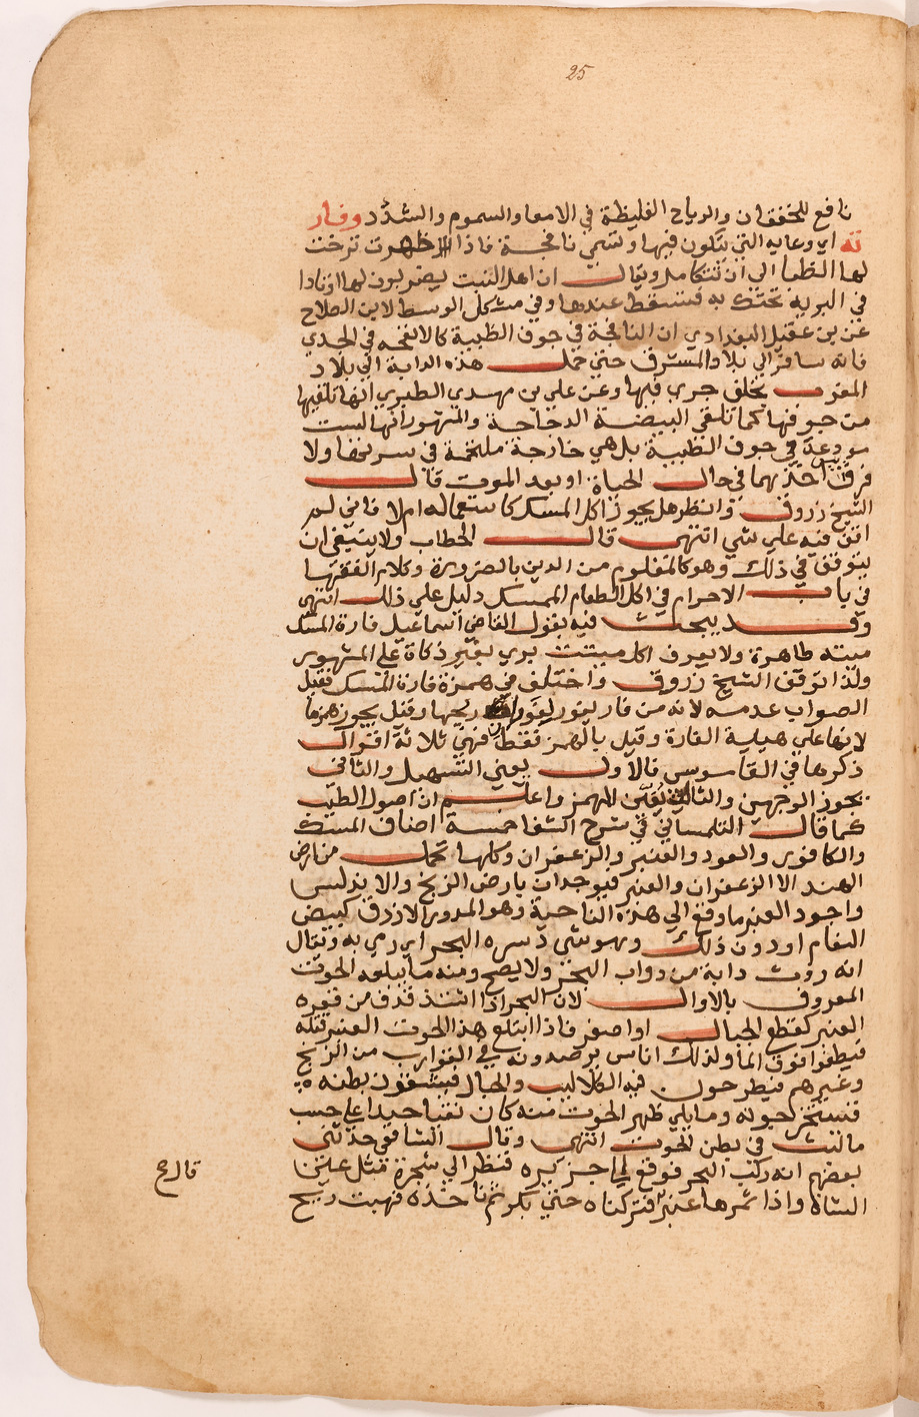 25
نافع للخفقان والرياح الغليظة في الامعا والسموم والسدد وفار
ته اي وعايه التي يتكون فيها وتسمي نافجة فاذا ظهرت نزخت
لها الظبا الي ان تتكامل ويقال ان اهل التبت يضربون لها اوتادا
في البرية تحتك به فتسقط عندها وفي مشكل الوسيط لابن الصلاح
عن بن عقيل البغدادي ان النافجة في جوف الظبية كالانفحه في الجدي
فانه سافر الي بلاد المشرق حتي حمل هذه الدابة الي بلاد
المغرب بخلف جري فيها وعن علي بن مهدي الطبري انها تلقيها
من جوفها كما تلقي البيضة الدجاجة والمشهور انها ليست
مودعة في جوف الظبية بل هي خارجة ملتحمة في سرتها ولا
فرق اخذهما في حال الحياة او بعد الموت قال
الشيخ زروق وانظر هل يجوز اكل المسك كاستعماله ام لا فاني لم
اقف فيه علي شي انتهي قال الحطاب ولا ينبغي ان
يتوقف في ذلك وهو كالمعلوم من الدين بالضرورة وكلام الفقها
في باب الاحرام في اكل الطعام الممسك دليل علي ذلك انتهي
وقد يبحث فيه بقول القاضي اسماعيل فارة المسك
ميته طاهرة ولا يعرف اكل ميتت بري بغير ذكاة علي المشهور
ولذا توقف الشيخ زروق واختلف في همزة فارة المسك فقيل
الصواب عدمه لانه من فار يفور لفوران ريحها وقيل يجوز همزها
لانها علي هيية الفارة وقيل بالهمز فقط فهي ثلاثة اقوال
ذكرها في القاموس فالاول يعني التسهيل والثاني
يجوز الوجهين والثالث يعين الهمز واعلم ان اصول الطيب
كما قال التلمساني في شرح الشفا خمسة اصناف المسك
والكافور والعود والعنبر والزعفران وكلها تحمل من ارض
الهند الا الزعفران والعنبر فيوجدان بارض الزنج والاندلس
واجود العنبر ما وقع الي هذه الناحية وهو المدور الازرق كبيض
النعام او دون ذلك وهو شي دسره البحر اي رمي به ويقال
انه روث دابة من دواب البحر ولا يصح ومنه ما يبلعه الحوت
المعروف بالاوال لان البحر اذا اشتد قذف من قعره
العنبر كقطع الجبال او اصغر فاذا ابتلع هذا الحوت العنبر قتله
فيطفوا فوق الما ولذلك اناس يرصدونه في القوارب من الزنج
وغيرهم فيطرحون فيه الكلاليب والحبال فيشقون بطنه
فيستخرجونه وما يلي ظهر الحوت منه كان نقيا جيدا علي حسب
مالبث في بطن الحوت انتهي وقال الشافعي حدثني
بعضهم انه ركب البحر فوقع الي جزيره فنظر الي شجرة مثل عنق
الشاة واذا ثمرها عنبر فتركناه حتي يكبر ثم ناخذه فهبت ريح